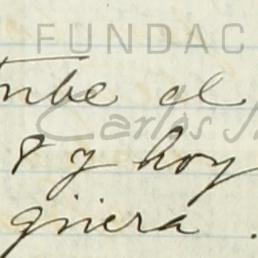 FUNDAC
ribe el
Carlos
8 y hoy
giiera.